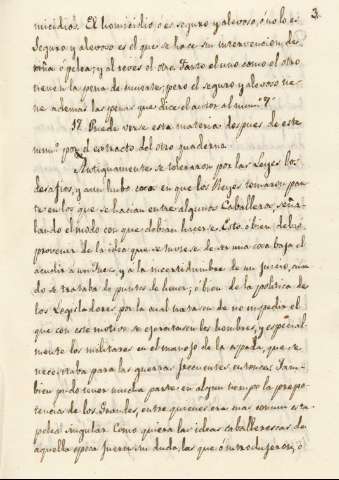 3.
micidios. El homicidio o es seguro y alevoso, ó no lo es.
Seguro y alevoso es el que se hace sin intervencion de
riña ó pelea; y al reves el otro. Tanto el uno como el otro
tienen la pena de muerte; pero el seguro y alevoso tie-
ne ademas las penas que dice el autor al num.º 7.
17. Puede verse esta materia despues de este
num.º por el extracto del otro quaderno.
Antiguamente se toleraron por las Leyes los
desafios, y aun hubo casos en que los Reyes tomaron par-
te en los que se hacian entre algunos Caballeros, seña-
lando el modo con que debian hacerse. Esto, ó bien debió
provenir de la idea que se tuviese de ser una cosa baja el
acudir a un Juez, y a la incertidumbre de un juicio, cuan-
do se trataba de puntos de honor; ó bien de la politica de
los Legisladores por la cual tratasen de no impedir el
que con este motivo se ejercitasen los hombres, y especial-
mente los militares en el manejo de la espada, que se
necesitaba para las guerras frecuentes entonces. Tam-
bien pudo tener mucha parte en algun tiempo la prepo-
tencia de los Grandes, entre quienes era mas comun esta
pelea singular. Como quiera las ideas caballerescas de
aquella epoca fueron sin duda, las que ó introdujeron, ó